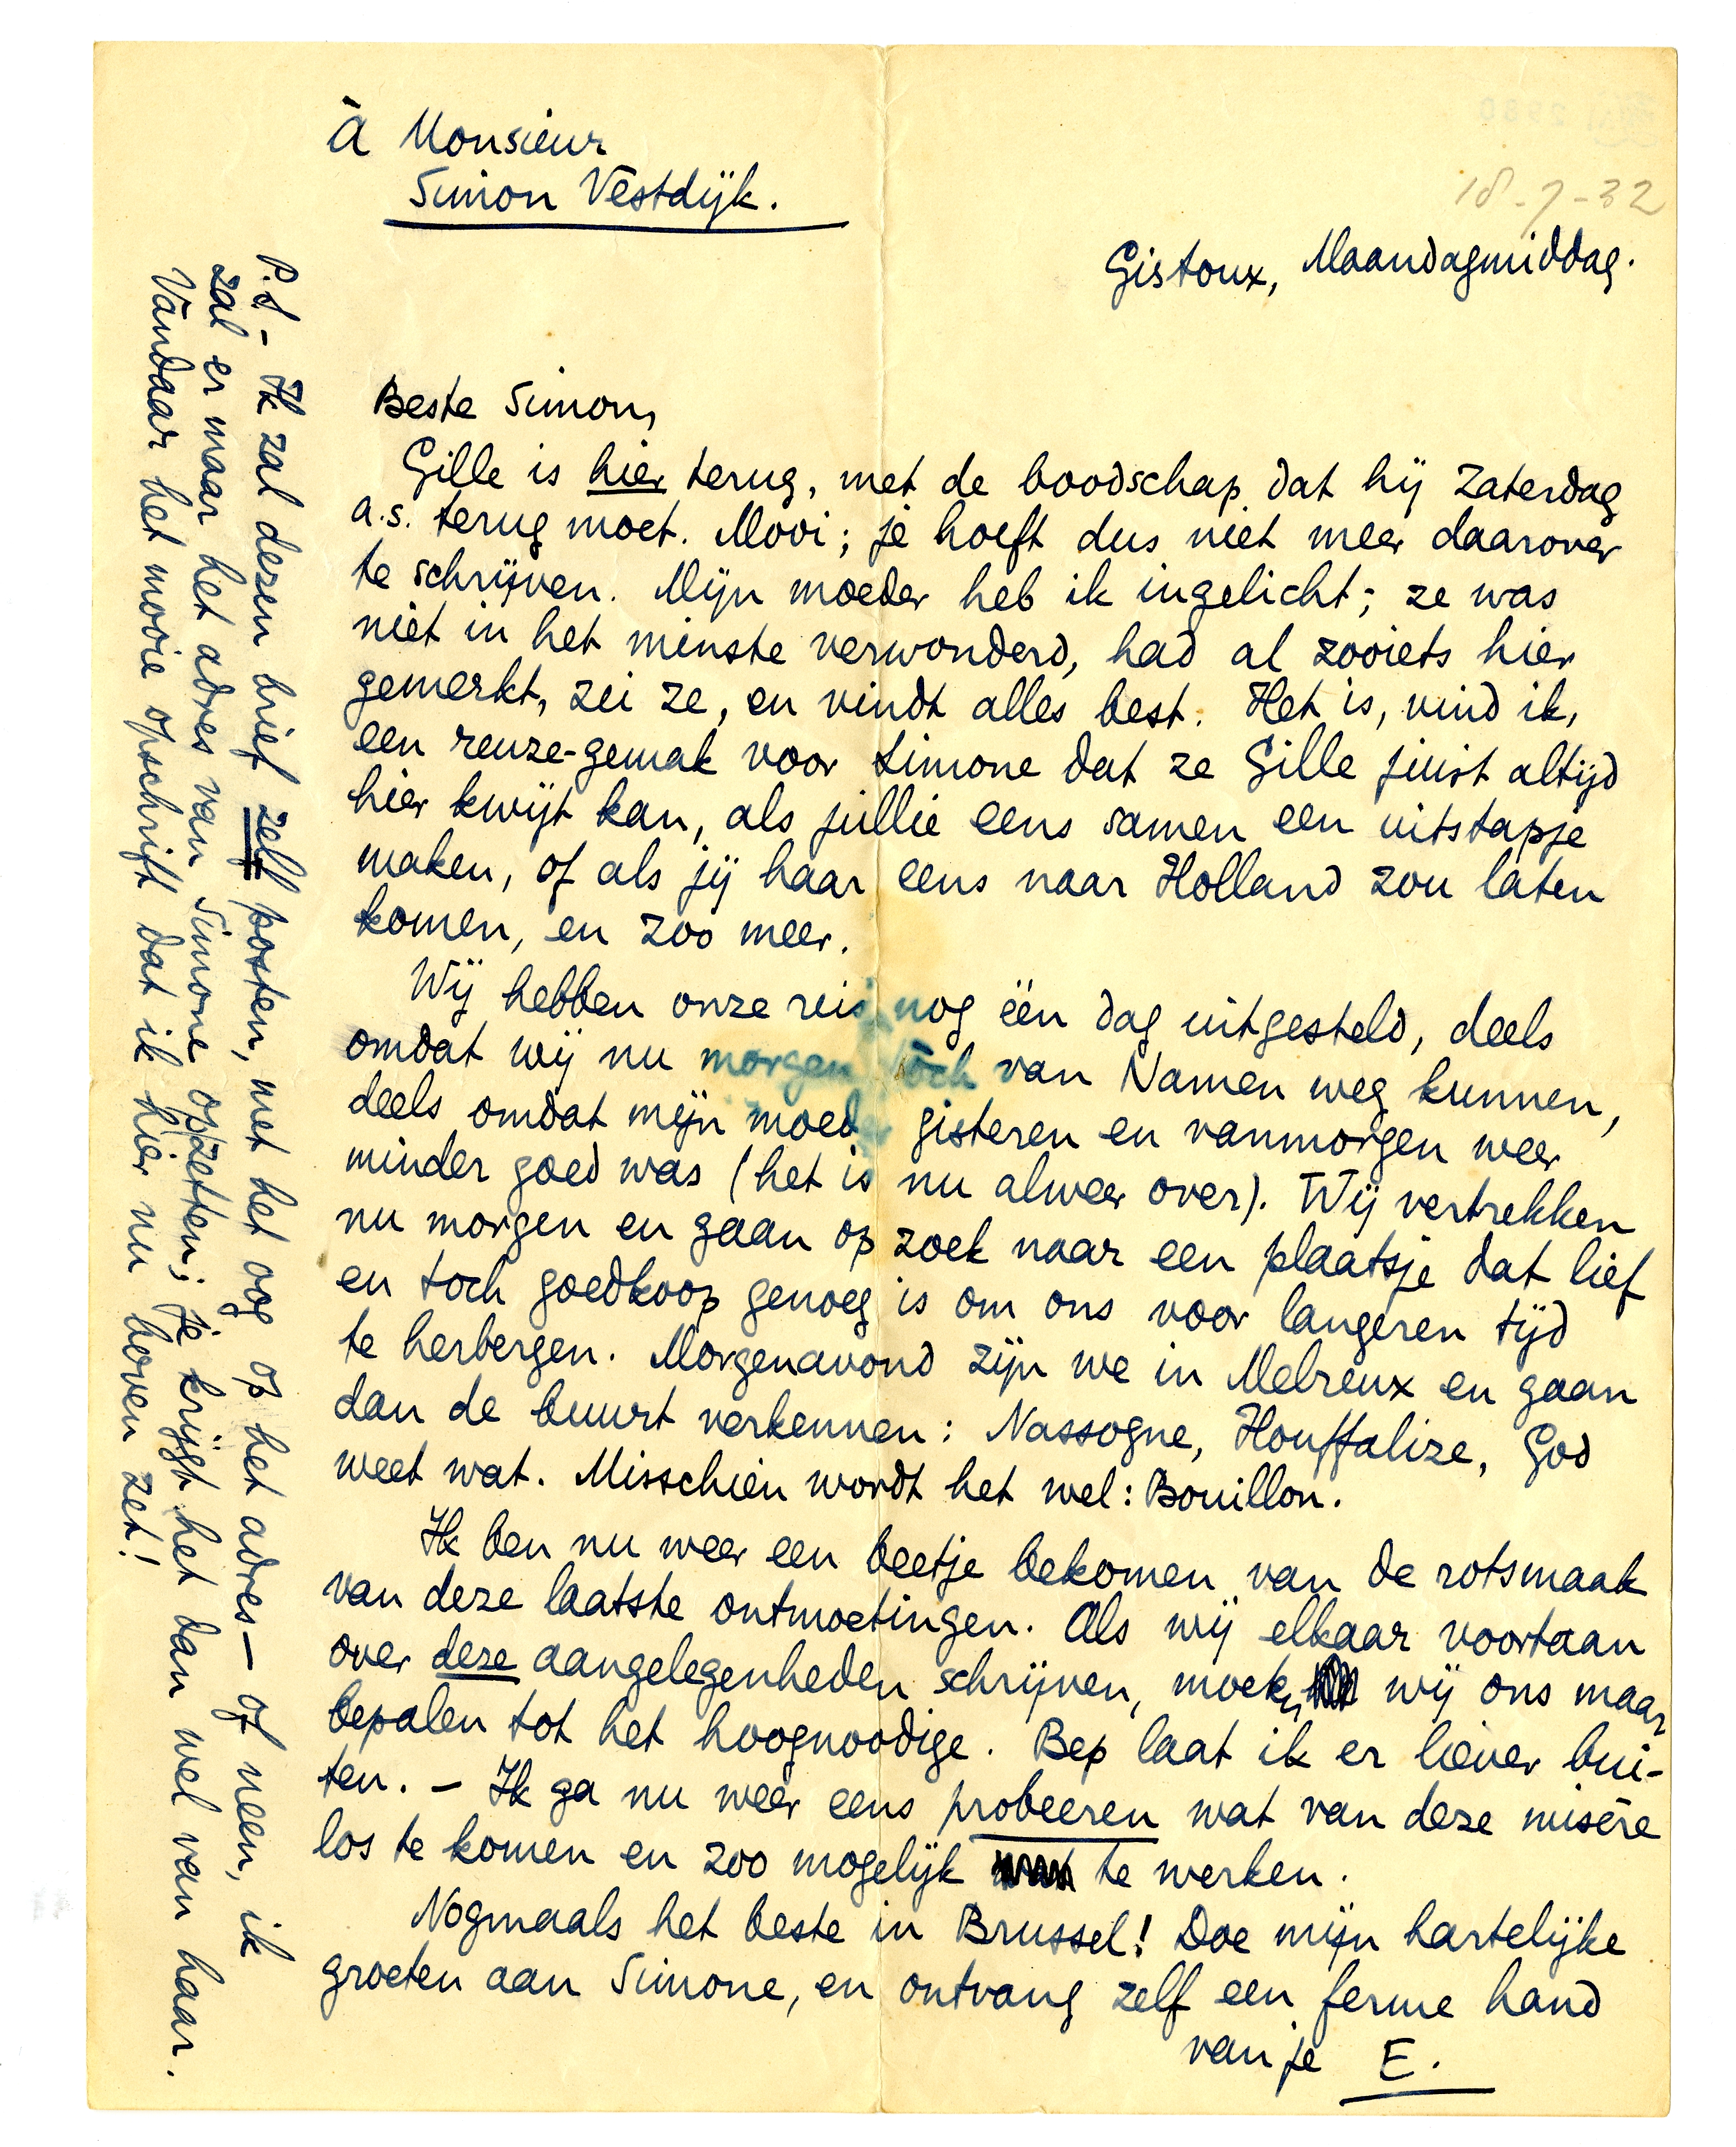 à Monsieur
Simon Vestdijk.
18-7-32
Gistoux, Maandagmiddag.
Beste Simon,
Gille is hier terug, met de boodschap dat hij Zaterdag
a.s. terug moet. Mooi; je hoeft dus niet meer daarover
te schrijven. Mijn moeder heb ik ingelicht; ze was
niet in het minste verwonderd, had al zooiets hier
gemerkt, zei ze, en vindt alles best. Het is, vind ik,
een reuze-gemak voor Simone dat ze Gille juist altijd
hier kwijt kan, als jullie eens samen een uitstapje
maken, of als jij haar eens naar Holland zou laten
komen, en zoo meer.
Wij hebben onze reis nog één dag uitgesteld, deels
omdat wij nu morgen tòch van Namen weg kunnen,
deels omdat mijn moeder gisteren en vanmorgen weer
minder goed was (het is nu alweer over). Wij vertrekken
nu morgen en gaan op zoek naar een plaatsje dat lief
en toch goedkoop genoeg is om ons voor langeren tijd
te herbergen. Morgenavond zijn we in Melreux en gaan
dan de buurt verkennen: Nassogne, Houffalize, God
weet wat. Misschien wordt het wel: Bouillon.
Ik ben nu weer een beetje bekomen van de rotsmaak
van deze laatste ontmoetingen. Als wij elkaar voortaan
over deze aangelegenheden schrijven, moeten wij ons maar
bepalen tot het hoognoodige. Bep laat ik er liever bui-
ten. – Ik ga nu weer eens probeeren wat van deze misère
los te komen en zoo mogelijk te werken.
Nogmaals het beste in Brussel! Doe mijn hartelijke
groeten aan Simone, en ontvang zelf een ferme hand
van je E.
P.S – Ik zal dezen brief zelf posten, met het oog op het adres – of neen, ik
zal er maar het adres van Simone opzetten; je krijgt het dan wel van haar.
Vandaar het mooie opschrift dat ik hier nu boven zet!